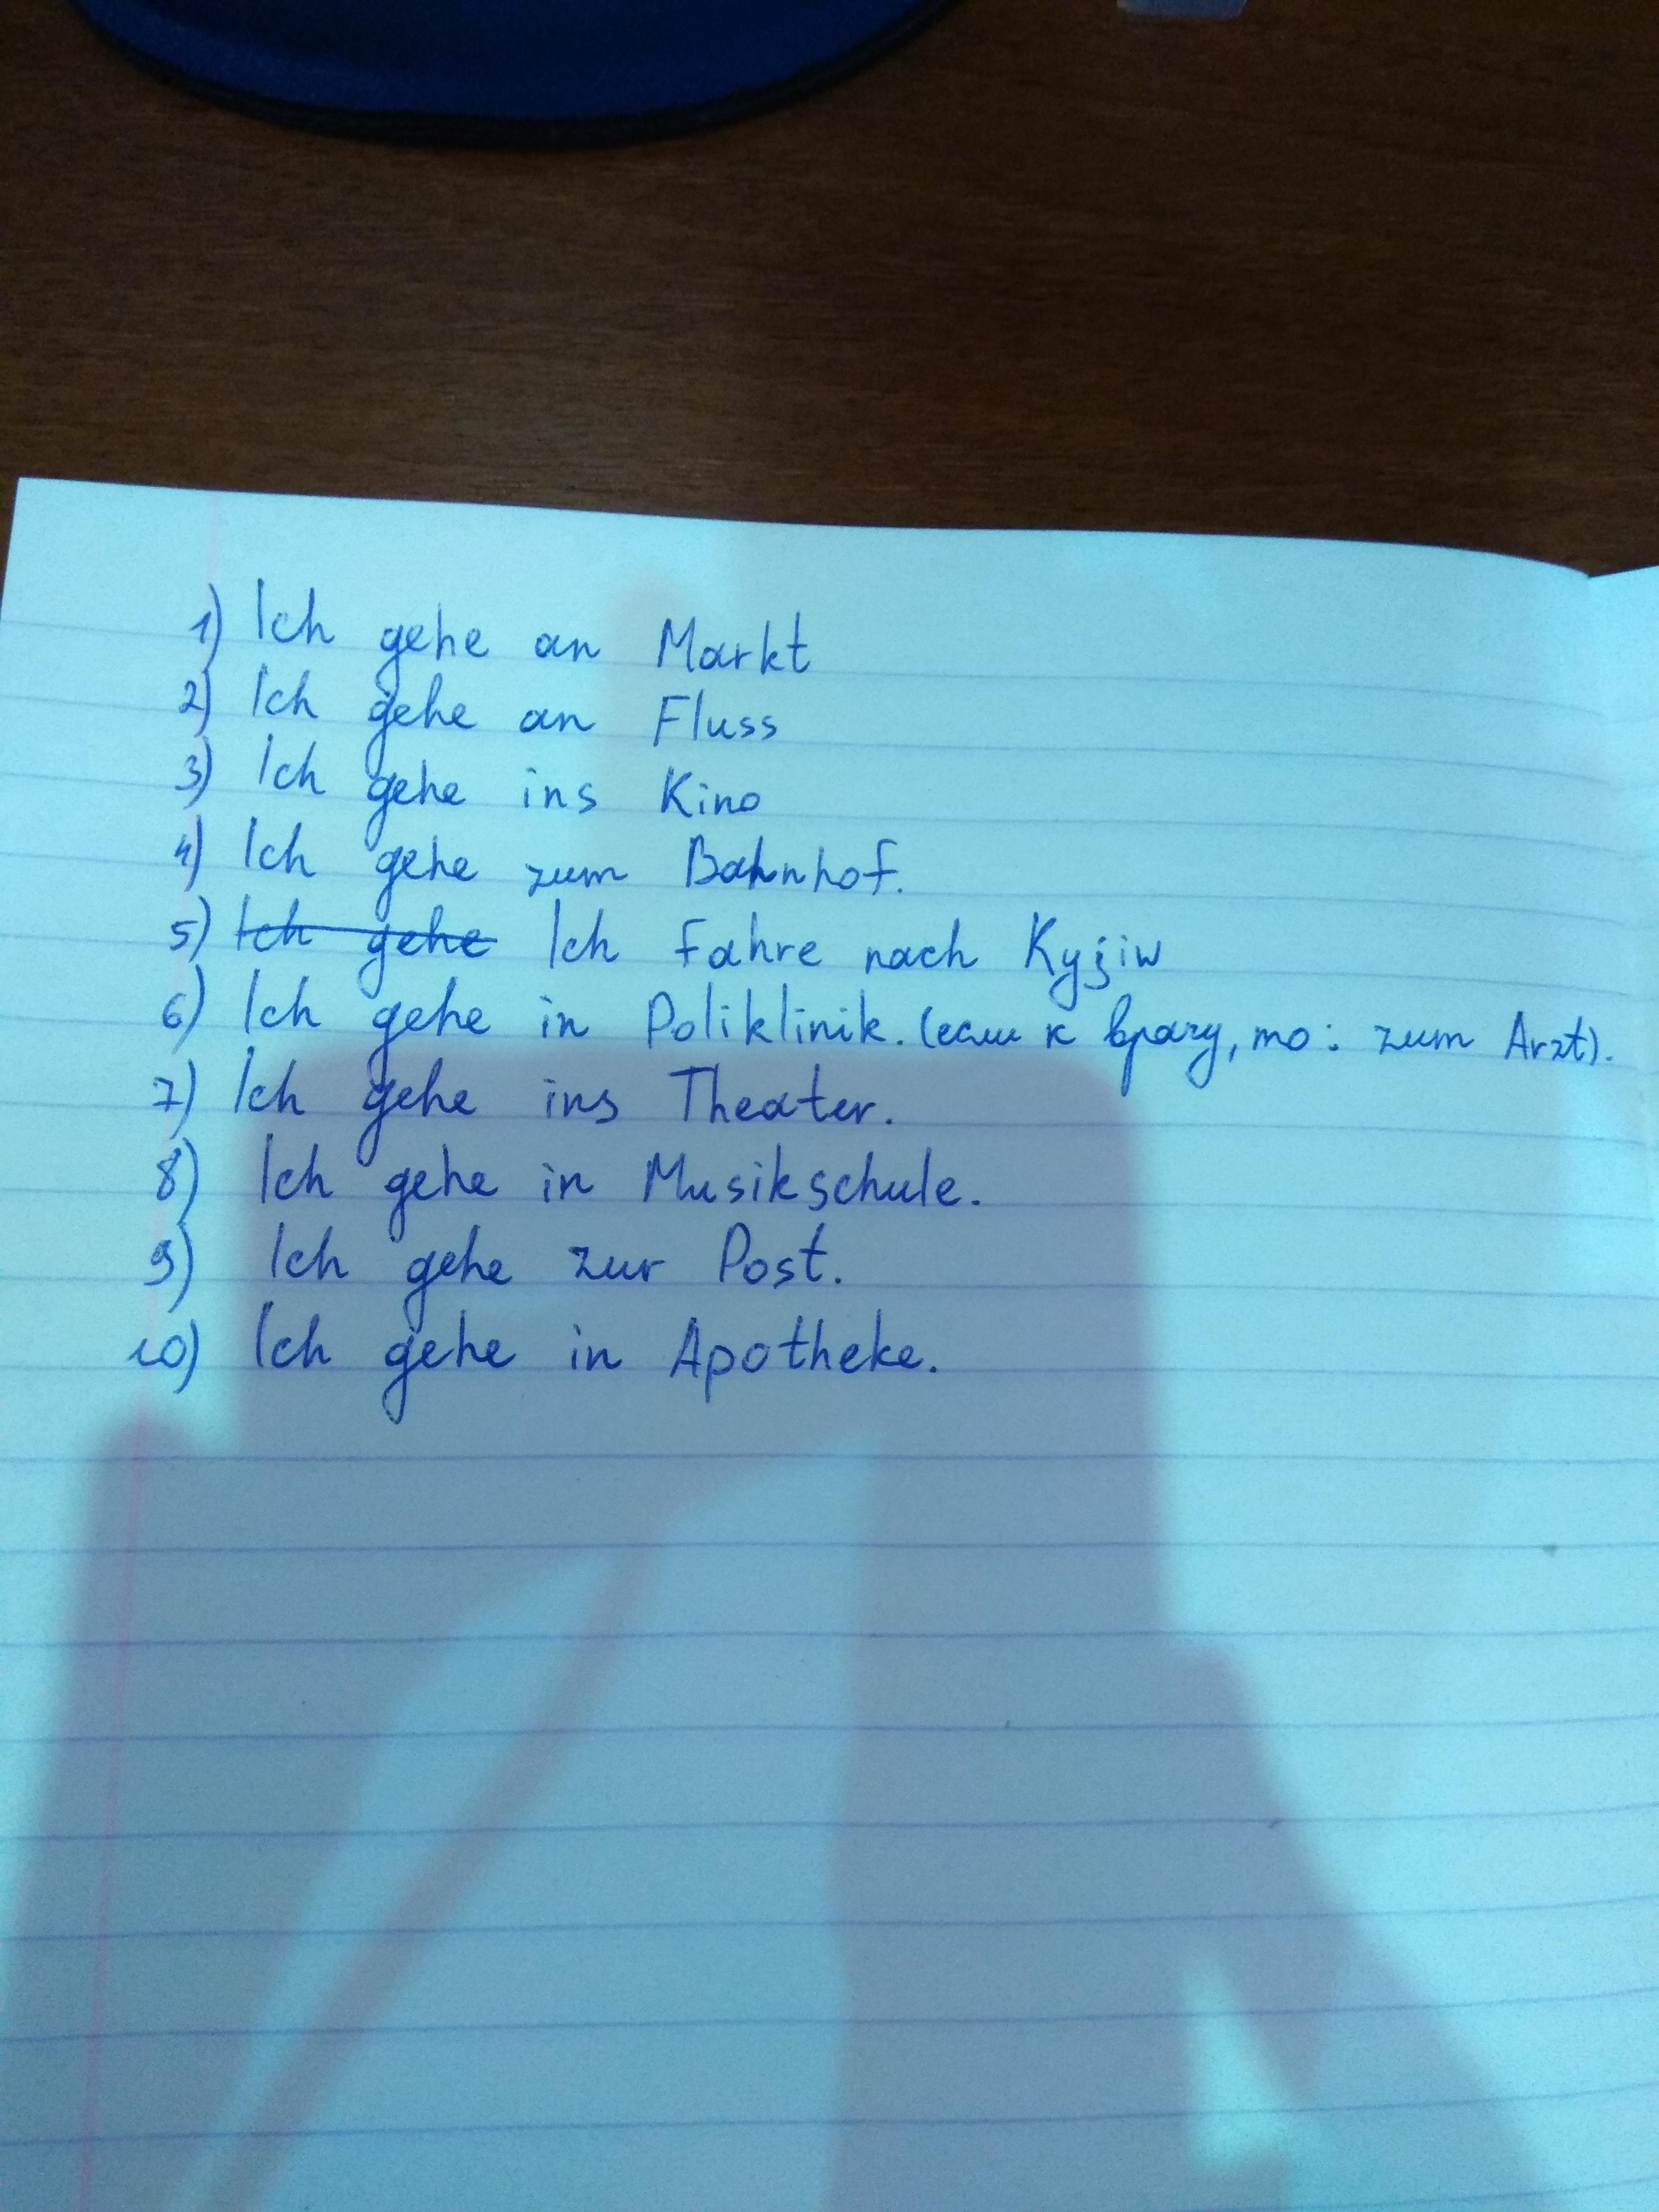 1) Ich gehe an Markt
2) Ich gehe an Fluss
3) Ich gehe ins Kino
4) Ich gehe zum Bahnhof.
5) Ich gehe Ich fahre nach Kyjiw
6) Ich gehe in Poliklinik. (если к врачу, то: zum Arzt).
7) Ich gehe ins Theater.
8) Ich gehe in Musikschule.
9) Ich gehe zur Post.
10) Ich gehe in Apotheke.